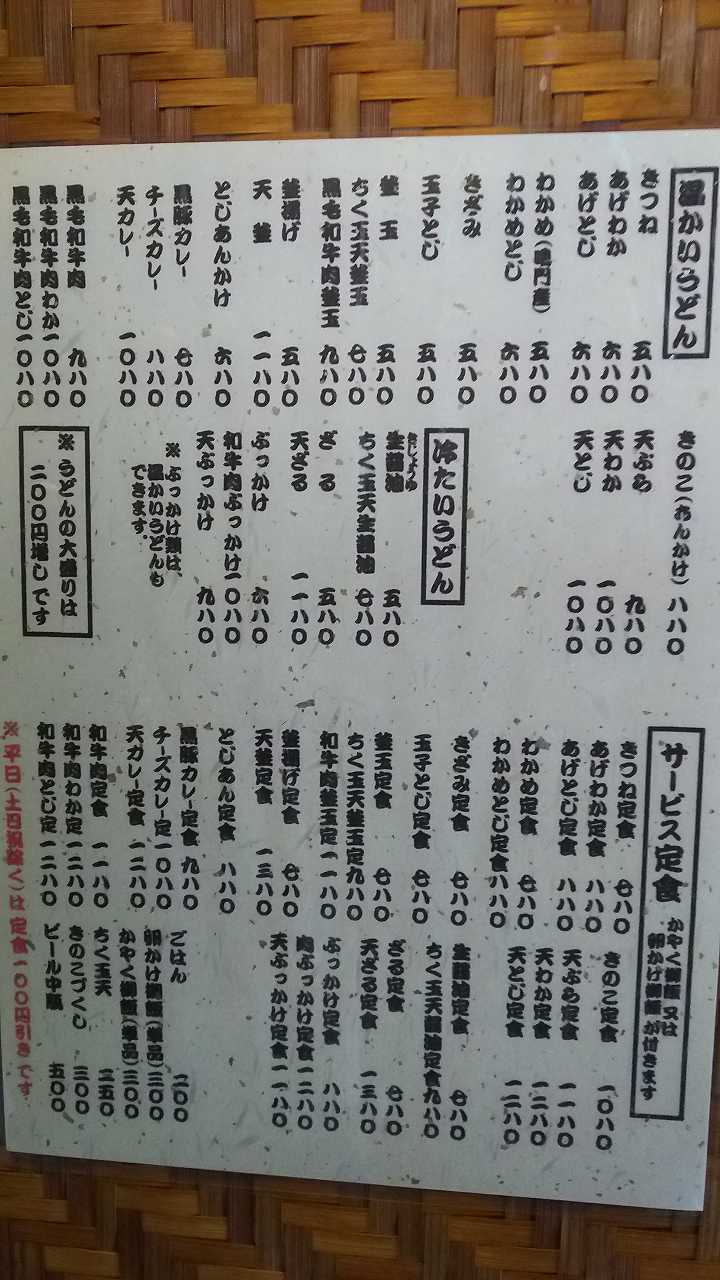 温かいうどん
きつね 五八〇
あげわか 六八〇
あげとじ 六八〇
わかめ(鳴門産) 五八〇
わかめとじ 六八〇
きざみ 五八〇
玉子とじ 五八〇
釜玉 五八〇
ちく玉天釜玉 七八〇
黒毛和牛肉釜玉 九八〇
釜揚げ 五八〇
天釜 一一八〇
とじあんかけ 六八〇
黒豚カレー 七八〇
チーズカレー 八八〇
天カレー 一〇八〇
黒毛和牛肉 九八〇
黒毛和牛肉わか 一〇八〇
黒毛和牛肉とじ 一〇八〇
きのこ(あんかけ) 八八〇
天ぷら 九八〇
天わか 一〇八〇
天とじ 一〇八〇
冷たいうどん
生醤油 五八〇
きじょうゆ
ちく玉天生醤油 七八〇
ざる 五八〇
天ざる 一一八〇
ぶっかけ 六八〇
和牛肉ぶっかけ 一〇八〇
天ぶっかけ 九八〇
※ぶっかけ類は、
温かいうどんも
できます。
※うどんの大盛りは
二〇〇円増しです
サービス定食
かやく御飯 又は
卵かけ御飯 が付きます
きつね定食 七八〇
あげわか定食 八八〇
あげとじ定食 八八〇
わかめ定食 七八〇
わかめとじ定食 八八〇
きざみ定食 七八〇
玉子とじ定食 七八〇
釜玉定食 七八〇
ちく玉天釜玉定 九八〇
和牛肉釜玉定 一一八〇
釜揚げ定食 七八〇
天釜定食 一三八〇
とじあん定食 八八〇
黒豚カレー定食 九八〇
チーズカレー定 一〇八〇
天カレー定食 一二八〇
和牛肉定食 一一八〇
和牛肉わか定 一二八〇
和牛肉とじ定 一二八〇
きのこ定食 一〇八〇
天ぷら定食 一一八〇
天わか定食 一二八〇
天とじ定食 一二八〇
生醤油定食 七八〇
ちく玉天醤油定食 九八〇
ざる定食 七八〇
天ざる定食 一三八〇
ぶっかけ定食 八八〇
肉ぶっかけ定食 一二八〇
天ぶっかけ定食 一一八〇
ごはん 二〇〇
卵かけ御飯(単品) 三〇〇
かやく御飯(単品) 三〇〇
ちく玉天 二五〇
きのこづくし 三〇〇
ビール中瓶 五〇〇
※平日(土日祝除く)は 定食一〇〇円引きです